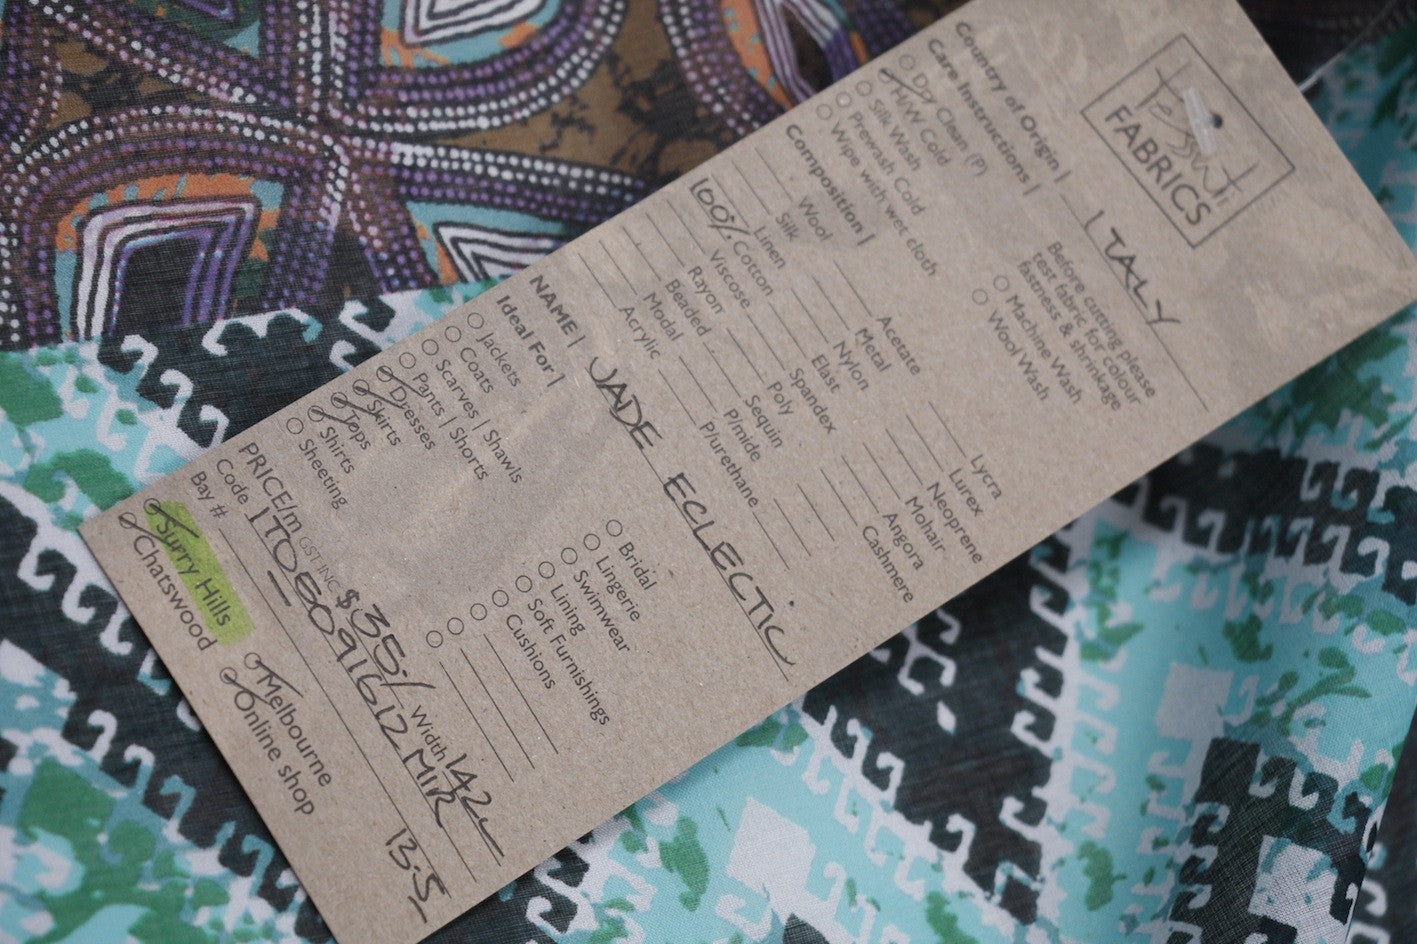 Tessuti
FABRICS
Country of Origin | ITALY
Care Instructions |
Before cutting please
test fabric for colour
fastness & shrinkage
Dry Clean (P)
H/W Cold
Silk Wash
Prewash Cold
Wipe with wet cloth
Machine Wash
Wool Wash
Composition |
Wool
Silk
Linen
100% Cotton
Viscose
Rayon
Beaded
Modal
Acrylic
Acetate
Metal
Nylon
Elast
Spandex
Poly
Sequin
P/mide
P/urethane
Lycra
Lurex
Neoprene
Mohair
Angora
Cashmere
NAME | JADE ECLECTIC
Ideal For |
Jackets
Coats
Scarves | Shawls
Pants | Shorts
Dresses
Skirts
Tops
Shirts
Sheeting
Bridal
Lingerie
Swimwear
Lining
Soft Furnishings
Cushions
PRICE/m GST INC $35.- Width 142
Code
Bay # 13.5
Surry Hills
Chatswood
Melbourne
Online shop